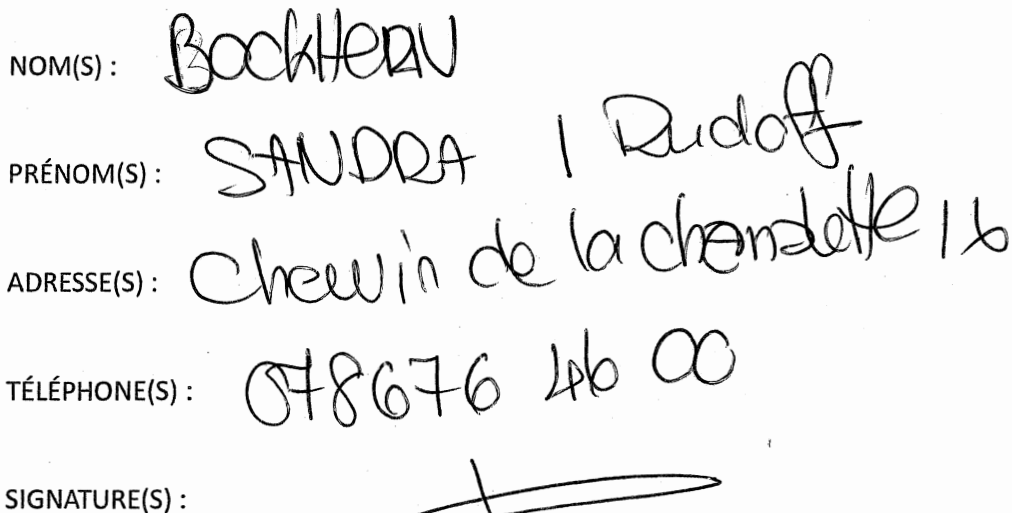 NOM(S) : BockHeRN
PRÉNOM(S) : SANDRA / Rudoff
ADRESSE(S) : Chemin de la chandelle 16
TÉLÉPHONE(S) : 078676 46 00
SIGNATURE(S) :